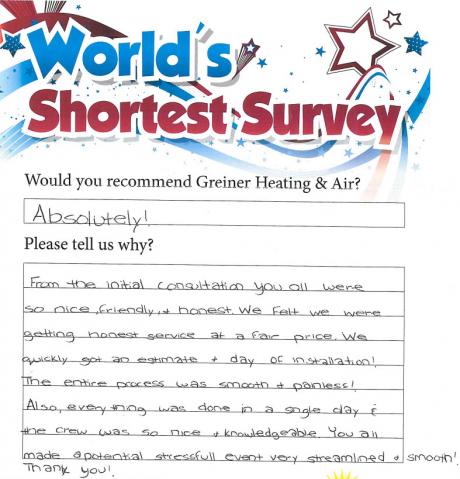 World's
Shortest Survey
Would you recommend Greiner Heating & Air?
Absolutely!
Please tell us why?
From the initial consultation you all were
so nice, friendly, + honest. We felt we were
getting honest service at a fair price. We
quickly got an estimate + day of installation!
The entire process was smooth + painless!
Also, everything was done in a single day &
the crew was so nice + knowledgeable. You all
made a potential stressfull event very streamlined + smooth!
Thank you!